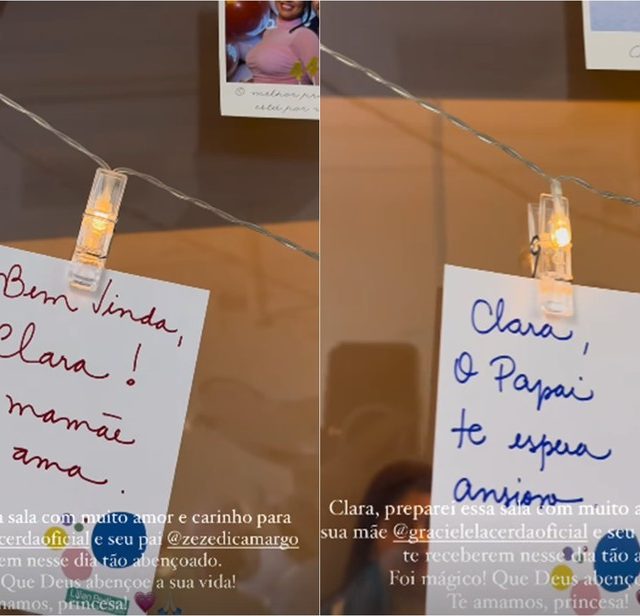 melhor
estu por
Bem Vinda,
Clara!
mamãe
ama.
sala com muito amor e carinho para
cerdaoficial e seu pai @zezedicamargo
em nesse dia tão abençoado.
Que Deus abençoe a sua vida!
amamos, princesa!
Clara,
O Papai
te espera
ansioso
Clara, preparei essa sala com muito a
sua mãe @gracielelacerdaoficial e seu
te receberem nesse dia tão a
Foi mágico! Que Deus abenço
Te amamos, princesa!